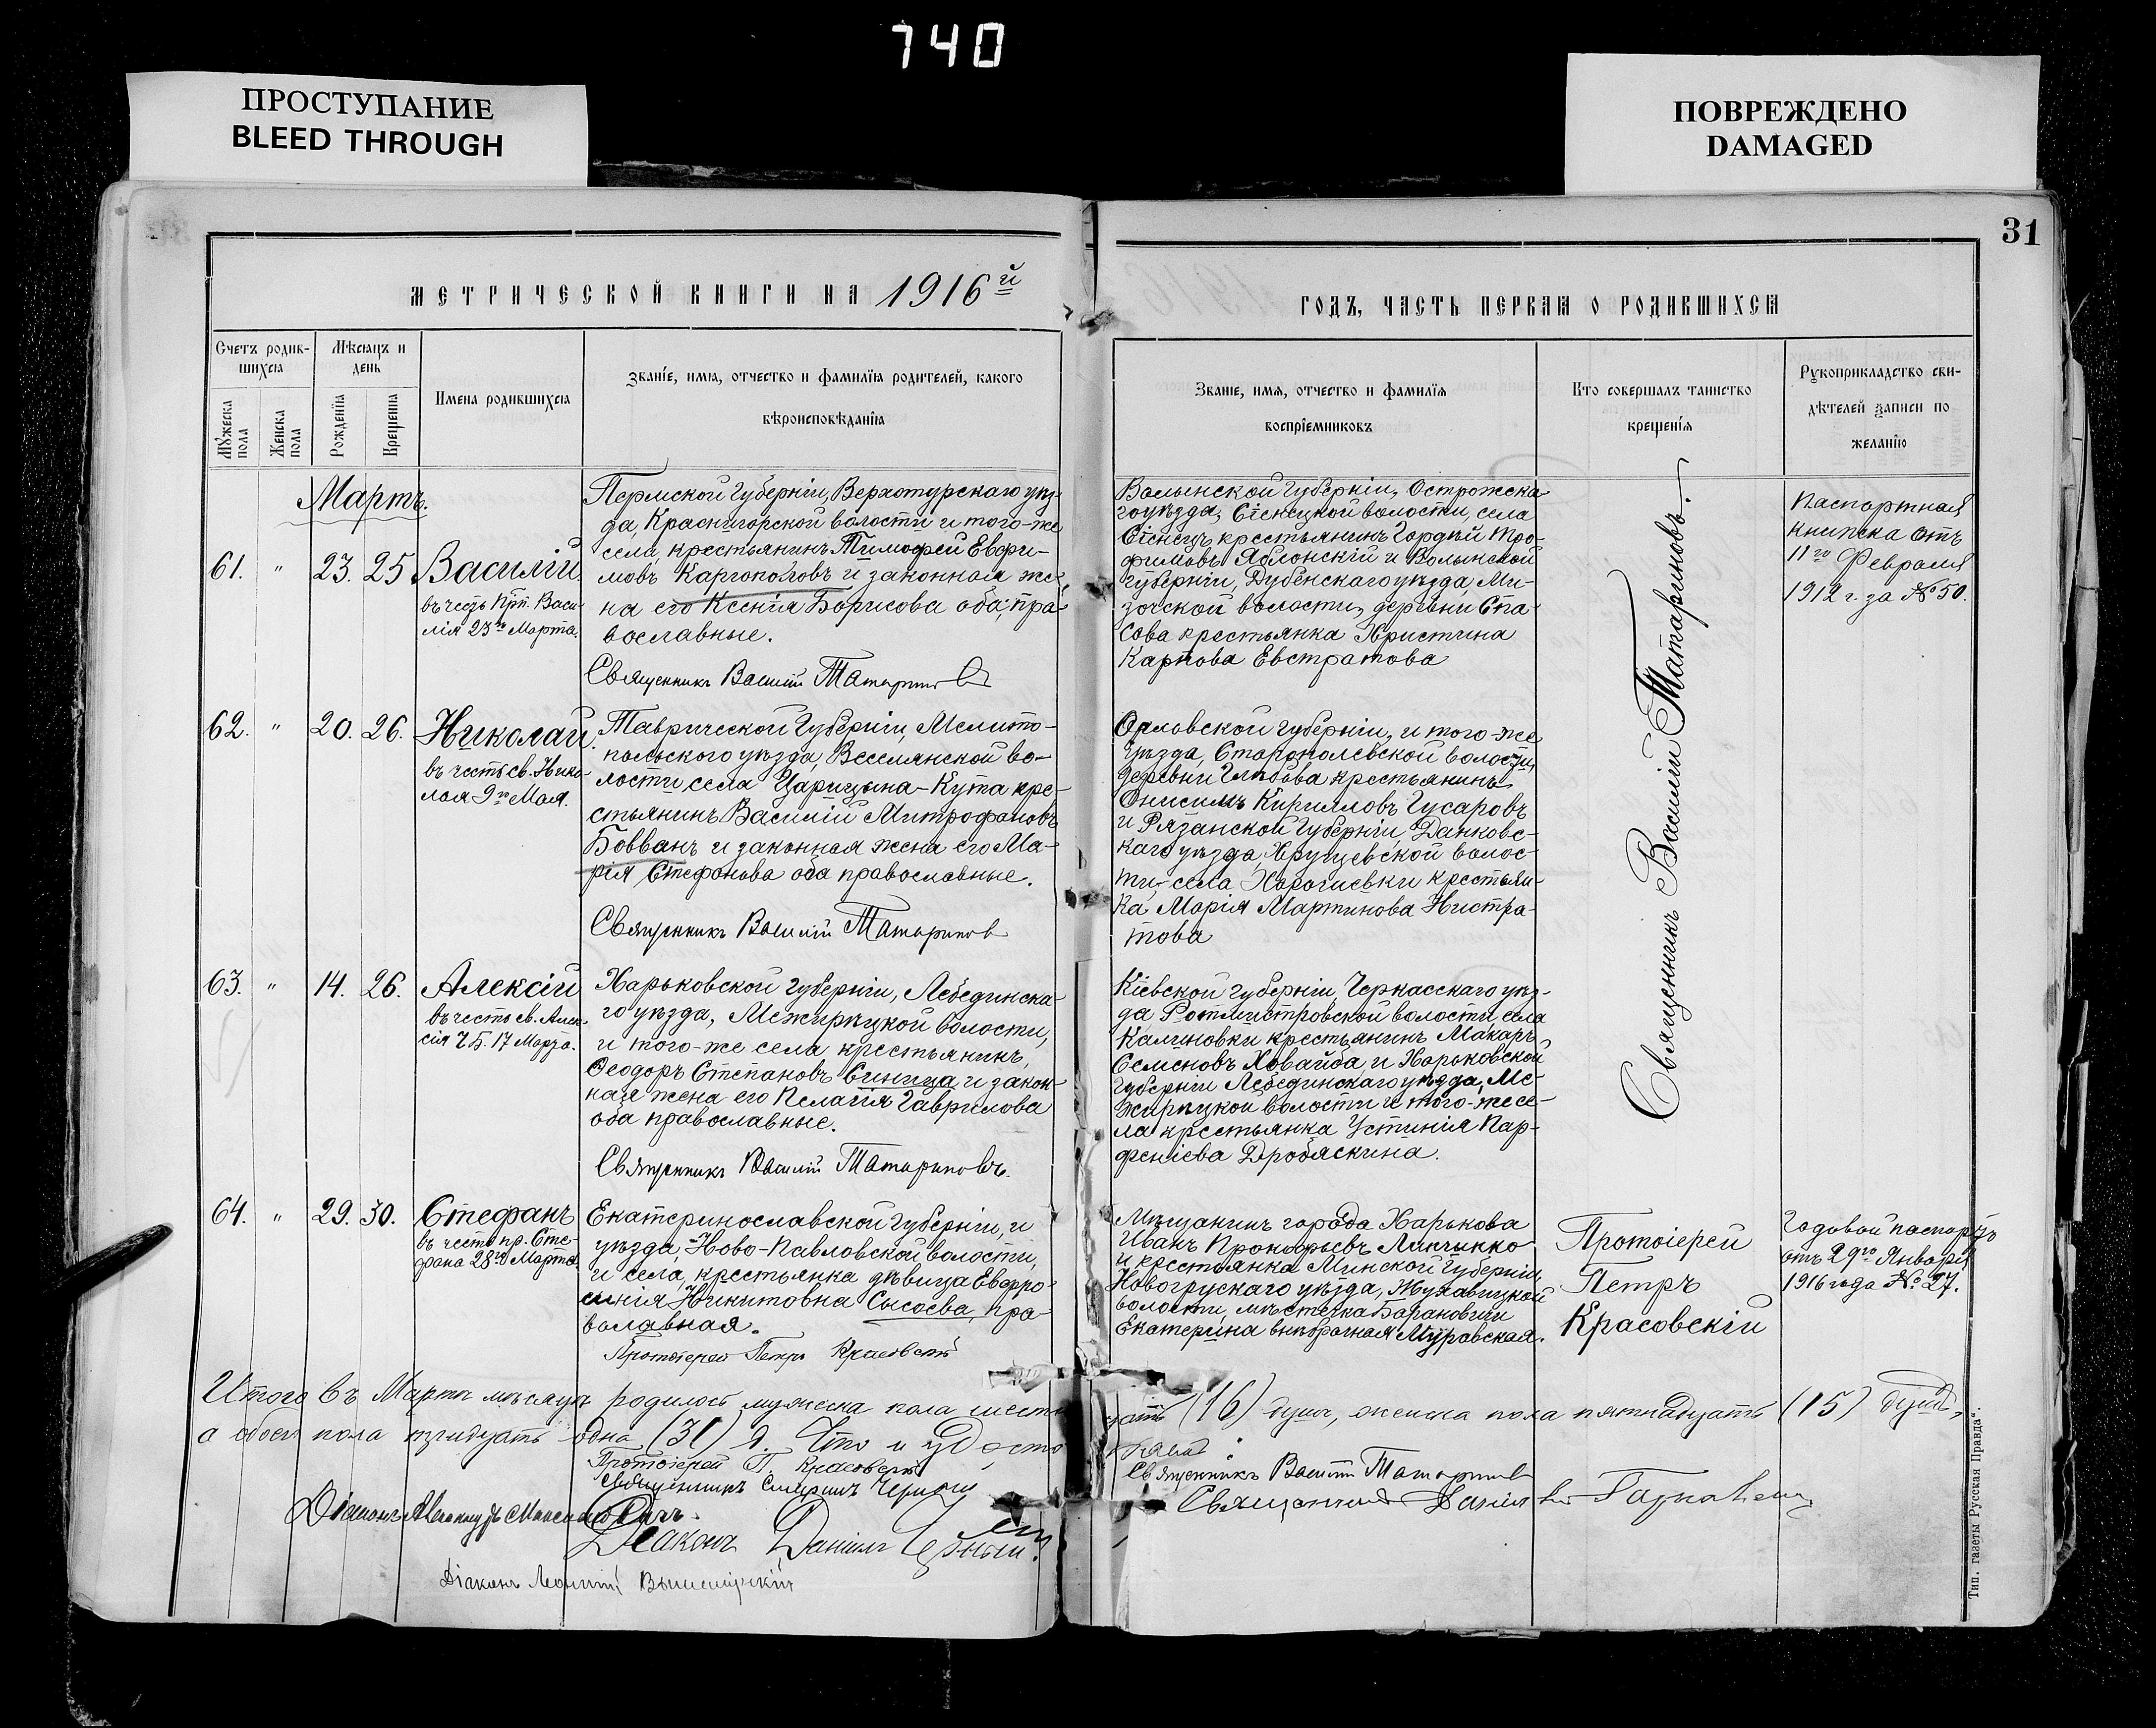 740
ПРОСТУПАНИЕ
BLEED THROUGH
ПОВРЕЖДЕНО
DAMAGED
31
МЕТРИЧЕСКОЙ КНИГИ НА 1916й
ГОДЪ, ЧАСТЬ ПЕРВАЯ О РОДИВШИХСЯ
Счетъ родив-
шихся
Мужеска пола
Женска пола
Мѣсяцъ и
день
Рожденїя
Крещенїя
Имена родившихся
Званїе, имя, отчество и фамилїя родителей, какого
вѣроисповѣданїя
Званїе, имя, отчество и фамилїя
воспрїемниковъ
Кто совершалъ таинство
крещенїя
Рукоприкладство сви-
дѣтелей записи по
желанїю
Мартъ.
61. " 23. 25
Василій
въ честь прп. Васи-
лія 23го Марта.
Пермской Губерніи, Верхотурскаго уѣз-
да, Красногорской волости и того-же
села, крестьянинъ Тимофей Евфи-
мовъ Каргополовъ и законная же-
на его Ксенія Борисова оба, пра-
вославные.
Священникъ Василій Татариновъ
Волынской Губерніи, Острожска-
го уѣзда, Сіенецкой волости, села
Сіенецъ крестьянинъ Гордѣй Тро-
фимовъ Яблонскій и Волынской
губерніи, Дубенскаго уѣзда, Ми-
зочской волости, деревни Спа-
сова крестьянка Христина
Карпова Евстратова
Священникъ Василій Татариновъ.
Паспортная
книжка отъ
11го Февраля
1912 г. за № 50.
62. " 20. 26.
Николай.
въ честь св. Нико-
лая 9го Мая.
Таврической Губерніи, Мелито-
польского уѣзда, Веселянской во-
лости, села Царицына-Кута кре-
стьянинъ Василій Митрофановъ
Бовванъ и законная жена его Ма-
рія Стефанова оба православные.
Священникъ Василій Татаринов
Орловской губерніи, и того-же
уѣзда, Старопольевской волости,
деревни Глѣбова крестьянинъ
Онисимъ Кирилловъ Гусаровъ
и Рязанской Губерніи, Данковс-
каго уѣзда, Хрущевской волос-
ти, села крестьян-
ка Марія Мартинова Нистра-
това
63. " 14. 26.
Алексій
въ честь св. Алек-
сія Ч.Б. 17 Марта.
Харьковской губерніи, Лебединска-
го уѣзда, Межирицкой волости,
и того-же села, крестьянинъ,
Ѳеодоръ Степановъ Синица, и закон-
ная жена его Пелагія Гаврилова
оба православные.
Священникъ Василій Татариновъ.
Кіевской губерніи, Черкасскаго уѣз-
да Ротмистровской волости, села
Калиновки крестьянинъ Макаръ
Семеновъ Ховайба, и Харьковской
губерніи Лебединскаго уѣзда, Ме-
жирицкой волости и того-же се-
ла крестьянка Устинія Пар-
феніева Дробяскина.
64. " 29. 30.
Стефанъ
въ честь пр. Сте-
фана 28го Марта.
Екатеринославской Губерніи, и
уѣзда, Ново-Павловской волости,
и села, крестьянка дѣвица Евфро-
синія Никитовна Сысоева, пра-
вославная.
Протоіерей Петръ Красовскій
Мѣщанинъ города Харькова
Иванъ Прокофьевъ
и крестьянка Минской губерніи,
Новогрускаго уѣзда,
волости, мѣстечка Барановичи
Екатерина внѣбрачная Муравская.
Протоіерей
Петръ
Красовскій
Годовой паспортъ
отъ 29го Января
1916 года № 27.
Итого въ Мартѣ мѣсяцѣ родилось мужеска пола шестнадцать (16) душъ, женска пола пятнадцать (15) душъ,
а обоего пола тридцать одна (31) д. Что и удостовѣряемъ:
Протоіерей П. Красовскій
Священникъ Василій Татаринов
Священникъ
Священникъ Даніилъ
Діаконъ
Діаконъ Даніилъ
Діаконъ
Тип. газеты „Русская Правда“.